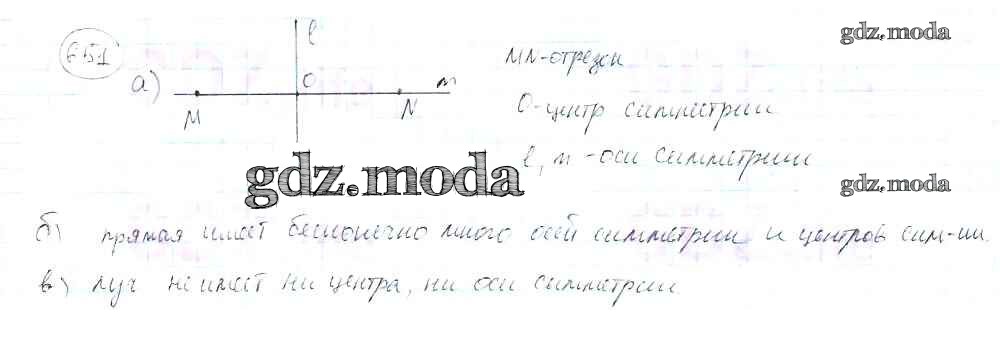 651
а)
l
O
m
M
N
MN-отрезок
O-центр симметрии
l, m -оси симметрии
gdz.moda
gdz.moda
gdz.moda
б) прямая имеет бесконечно много осей симметрии и центров сим-ии.
в) луч не имеет ни центра, ни оси симметрии.